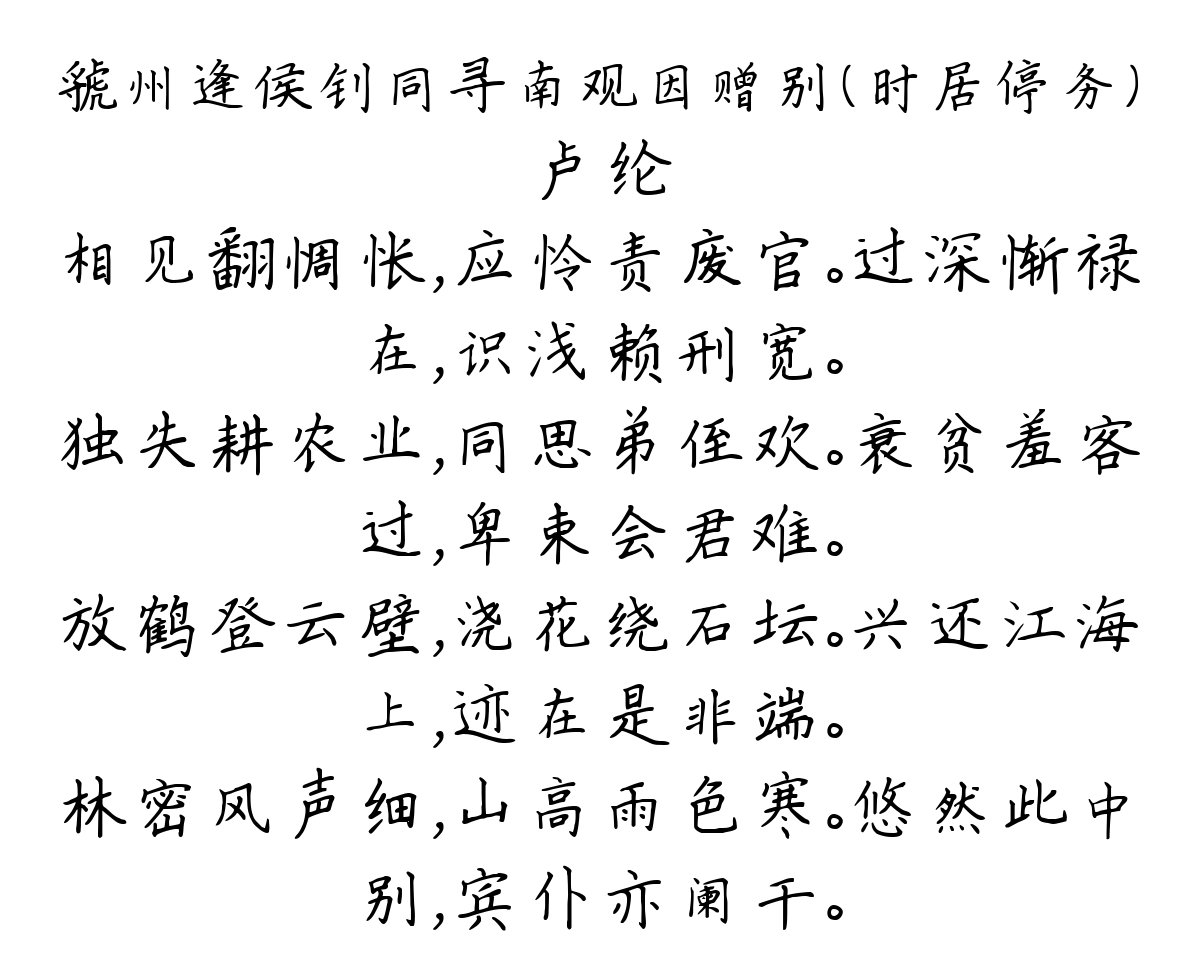 虢州逢侯钊同寻南观因赠别(时居停务)
卢纶
相见翻惆怅,应怜责废官。过深惭禄
在,识浅赖刑宽。
独失耕农业,同思弟侄欢。衰贫羞客
过,卑束会君难。
放鹤登云壁,浇花绕石坛。兴还江海
上,迹在是非端。
林密风声细,山高雨色寒。悠然此中
别,宾仆亦阑干。